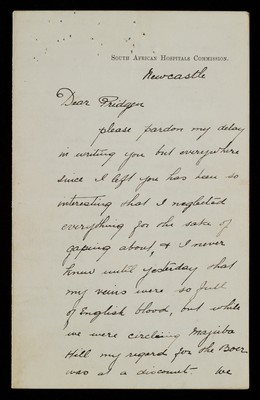 South African Hospitals Commission.
Newcastle
Dear Pridgen
please pardon my delay
in writing you but everywhere
since I left you has been so
interesting that I neglected
everything for the sake of
gaping about, & I never
knew until yesterday that
my veins were so full
of English blood, but while
we were circling Majuba
Hill my regard for the Boer
was at a discount - we